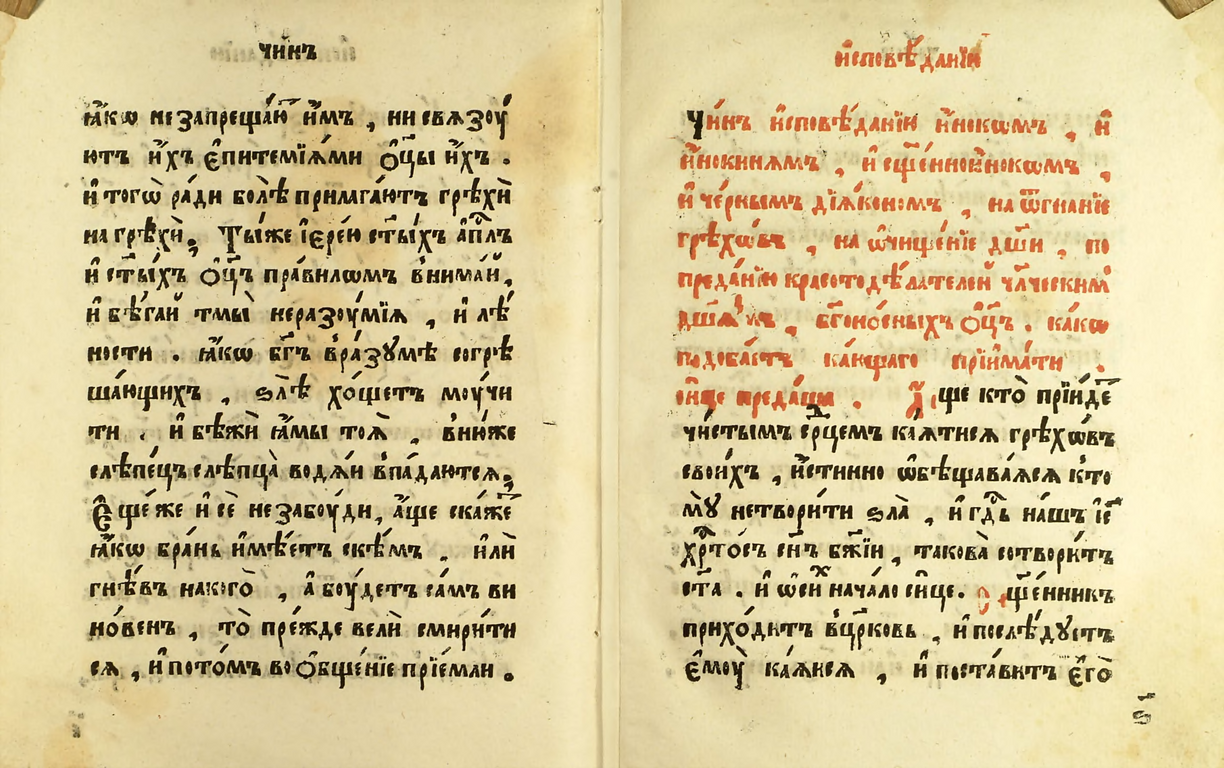 чи́нъ
ꙗ҆́кѡ незапреща́ю и҆̀мъ , ни свѧзоу́
ютъ и҆́хъ є҆питемїѧ́ми ѻ҆ц҃ы и҆́хъ .
и҆ тогѡ̀ ра́ди бо́лѣ прилага́ютъ грѣхѝ
на грѣхѝ . Ты́же і҆ере́ю ст҃ы́хъ а҆п҃лъ
и҆ ст҃ы́хъ ѻ҆ц҃ъ пра́вилѡмъ внима́й ,
и҆ бѣ́гай тмы̀ неразꙋ́мїѧ , и҆ лѣ́
ности . ꙗ҆́кѡ бг҃ъ вразꙋмѣ̀ согрѣ
ша́ющихъ , ѕлѣ̀ хо́щетъ моу́чи
ти . и҆ бѣжѝ ꙗ҆́мы тоѧ̀ , вню́же
слѣпе́цъ слѣпца̀ водѧ́й впа́даютсѧ .
Є҆ще́ же и҆ сѐ незабоу́ди , а҆́ще ска́же
ꙗ҆́кѡ бра́нь и҆мѣ́етъ скѣ́мъ . и҆лѝ
гнѣ́въ накого̀ , а боу́детъ са́мъ ви
но́венъ , то̀ пре́жде велѝ смири́ти
сѧ , и҆ пото́мъ во ѻ҆бще́нїе прїе́мли .
и҆сповѣ́данїю
Чи́нъ и҆сповѣ́данїю и҆́нокѡмъ , и҆
и҆́нокинѧмъ , и҆ сщ҃е́нноинокѡмъ ,
и҆ че́рнымъ дїѧ́кономъ , на ѿгна́нїе
грѣхѡ́въ , на ѡ҆чище́нїе дш҃и , по
преда́нїю красотодѣ́лателей чл҃ческим
дш҃а́мъ , бг҃оно́сныхъ ѻ҆ц҃ъ . ка́кѡ
подоба́етъ ка́ющаго прїима́ти .
си́це преда́ша . А҆́ще кто̀ прїи́де
чи́стымъ ср҃цемъ ка́ѧтисѧ грѣхѡ́въ
свои́хъ , и҆́стинно ѡ҆бѣщава́ѧсѧ кто
мꙋ̀ нетвори́ти ѕла̀ , и҆ гд҃ь на́шъ і҆с҃
хр҃то́съ сн҃ъ бж҃їи , такова̀ сотвори́тъ
ст҃а . и҆ ѡ҆си́х нача́ло си́це . Сщ҃е́нникъ
прихо́дитъ вцр҃ковь , и҆ послѣ́дꙋетъ
є҆моу̀ ка́ѧисѧ , и҆ поста́витъ є҆го̀
ѕ҃